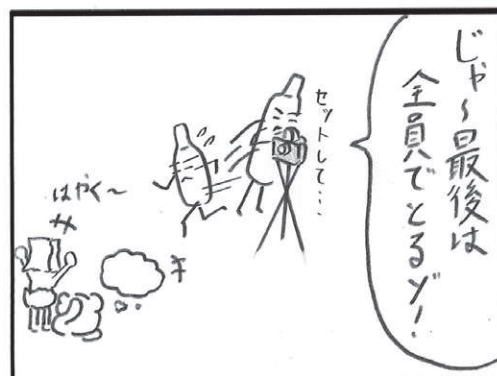 じゃ〜最後は
全員でとるゾ!
セットして…
はやく〜